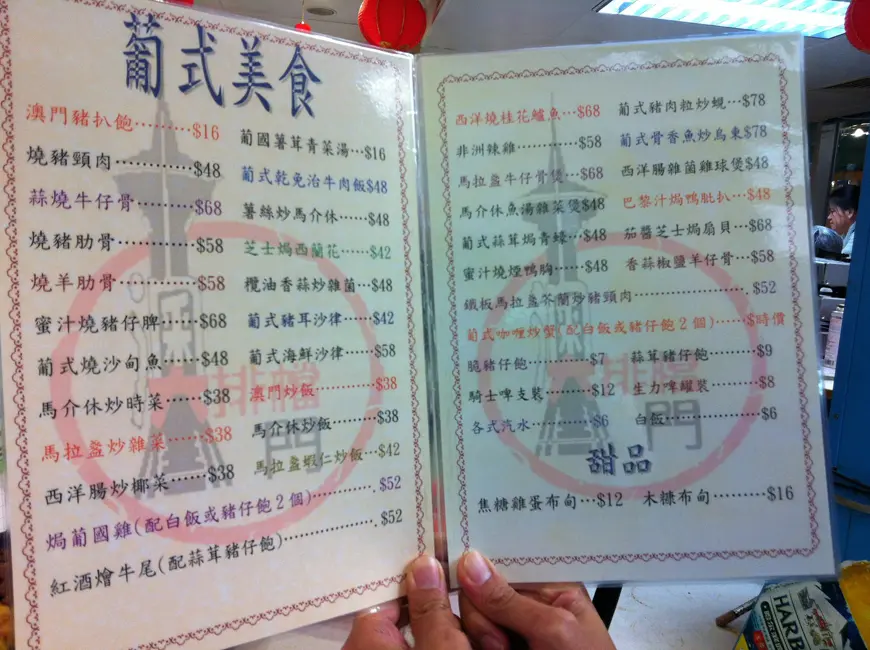 葡式美食
澳門豬扒飽.........$16
燒豬頸肉............$48
蒜燒牛仔骨.........$68
燒豬肋骨............$58
燒羊肋骨............$58
蜜汁燒豬仔脾......$68
葡式燒沙甸魚......$48
馬介休炒時菜......$38
馬拉盞炒雜菜......$38
西洋腸炒椰菜......$38
焗葡國雞(配白飯或豬仔飽2個)............$52
紅酒燴牛尾(配蒜茸豬仔飽)..................$52
葡國薯茸青菜湯...$16
葡式乾免治牛肉飯$48
薯絲炒馬介休......$48
芝士焗西蘭花......$42
欖油香蒜炒雜菌...$48
葡式豬耳沙律......$42
葡式海鮮沙律......$58
澳門炒飯............$38
馬介休炒飯.........$38
馬拉盞蝦仁炒飯...$42
大排檔
門
西洋燒桂花鱸魚...$68
非洲辣雞............$58
馬拉盞牛仔骨煲...$68
馬介休魚湯雜菜煲$48
葡式蒜茸焗青蠔...$48
蜜汁燒煙鴨胸......$48
鐵板馬拉盞芥蘭炒豬頸肉..................$52
葡式咖喱炒蟹(配白飯或豬仔飽2個)......$時價
脆豬仔飽............$7
騎士啤支裝.........$12
各式汽水............$6
葡式豬肉粒炒蜆...$78
葡式骨香魚炒烏東$78
西洋腸雜菌雞球煲$48
巴黎汁焗鴨肶扒...$48
茄醬芝士焗扇貝...$68
香蒜椒鹽羊仔骨...$58
蒜茸豬仔飽.........$9
生力啤罐裝.........$8
白飯..................$6
排檔
門
甜品
焦糖雞蛋布甸...$12
木糠布甸.........$16
HARB